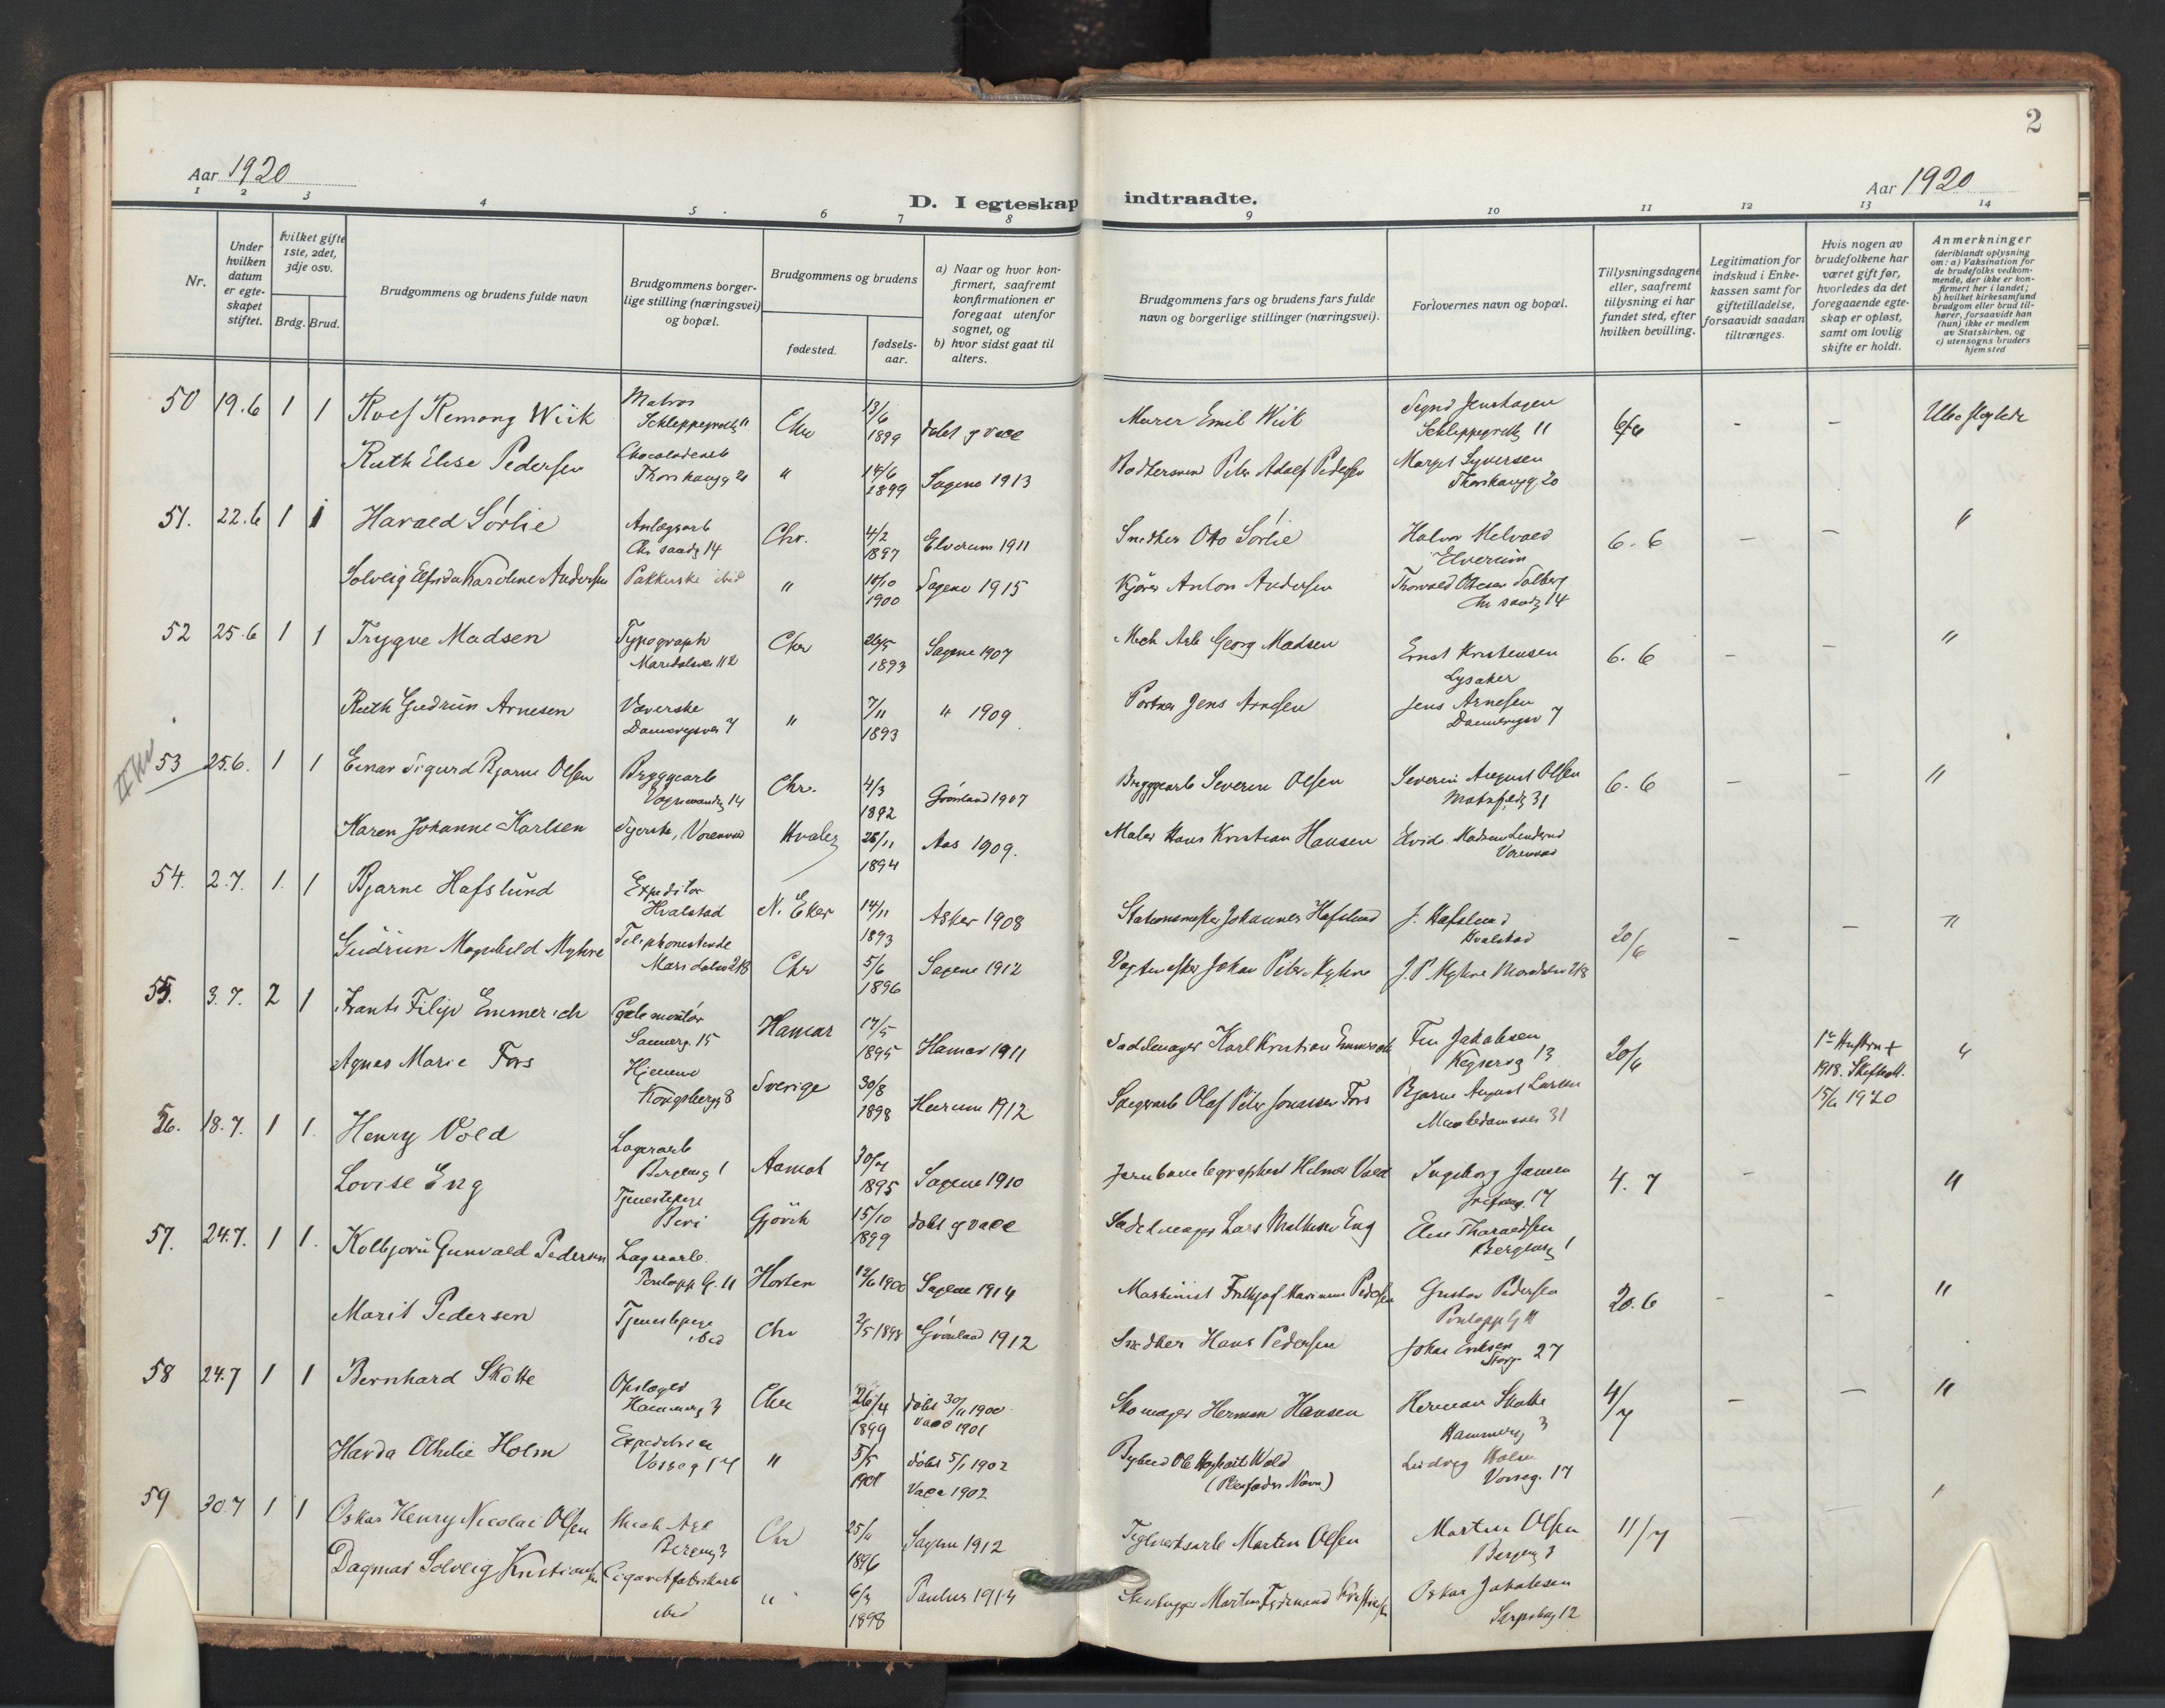 2
Aar 1920
Aar 1920
D. I egteskap indtraadte.
1 2 3 4 5 6 7 8 9 10 11 12 13 14
Nr.
Under hvilken datum er egteskapet stiftet.
hvilket gifte 1ste, 2det, 3dje osv.
Brdg. Brud.
Brudgommens og brudens fulde navn
Brudgommens borgerlige stilling (næringsvei) og bopæl.
Brudgommens og brudens
fødested.
fødselsaar.
a) Naar og hvor konfirmert, saafremt konfirmationen er foregaat utenfor sognet, og
b) hvor sidst gaat til alters.
Brudgommens fars og brudens fars fulde navn og borgerlige stillinger (næringsvei).
Forlovernes navn og bopæl.
Tillysningsdagene eller, saafremt tillysning ei har fundet sted, efter hvilken bevilling.
Legitimation for indskud i Enkekassen samt for giftetilladelse, forsaavidt saadan tiltrænges.
Hvis nogen av brudefolkene har været gift før, hvorledes da det foregaaende egteskap er opløst, samt om lovlig skifte er holdt.
Anmerkninger (deriblandt oplysning om: a) Vaksination for de brudefolks vedkommende, der ikke er konfirmert her i landet; b) hvilket kirkesamfund brudgom eller brud tilhører, forsaavidt han (hun) ikke er medlem av Statskirken, og c) utensogns bruders hjemsted
50 19.6 1 1 Rolf Remong Wiik Matros Schleppegrellsg 11 Chr 13/6 1899 døbt og vacc Murer Emil Wiik Schleppegrellsg 11 6/6 - -
Ruth Elise Pedersen Thorshaugg 20 " 14/6 1899 Sagene 1913 Peter Adolf Pedersen Margit Syversen Thorshaugg 20
51. 22.6 1 1 Harald Sørlie Anlægsarb Chr sandg 14 Chr. 4/2 1897 Elverum 1911 Snedker Otto Sørlie Halvor Melvold Elverum 6.6 - - "
Solveig Elfrida Karoline Andersen Pakkerske ibid " 10/10 1900 Sagene 1915 Kjører Anton Andersen Thorvald Olsen Solberg Chr sandg 14
52 25.6 1 1 Trygve Madsen Typograph Maridalsvei 112 Chr 26/5 1893 Sagene 1907 Mek Arb Georg Madsen Ernst Kristensen Lysaker 6.6 - - "
Ruth Gudrun Arnesen Væverske Dannevigsvei 7 " 7/11 1893 " 1909 Portner Jens Arnesen Jens Arnesen Dannevigsv 7
II Kv
53 25.6. 1 1 Einar Sigurd Bjarne Olsen Bryggearb Vøgnmandsg 14 Chr. 4/3 1892 Grønland 1907 Bryggearb Severin Olsen Severin August Olsen 31 6.6 - - "
Karen Johanne Karlsen Syerske, Hvaler 28/11 1894 Aas 1909. Maler Hans Kristian Hansen
54. 2.7. 1. 1 Bjarne Hafslund Expeditør Hvalstad N. Eker 14/11 1893 Asker 1908 Stationsmester Johannes Hafslund J. Hafslund Hvalstad 20/6 - - "
Gudrun Magnhild Myhre Telephonistinde Maridalsv 218 Chr 5/6 1896 Sagene 1912 Vagtmester Johan Peter Myhre J. P. Myhre Maridalsv 218
55. 3.7. 2 1 Frants Filip Emmerich montør Sannerg. 15 Hamar 17/5 1895 Hamar 1911 Sadelmager Karl Kristian Emmerich Jakobsen Keyserg 13 20/6 1e Hustru + 1918. Skifteatt. 15/6 1920 "
Agnes Marie Fors Hjemme Kongsbergg 8 Sverige 30/8 1898 Hurum 1912 Olaf Peter Jonassen Fors Bjarne August Larsen Munkedamsvei 31
56. 18.7. 1 1. Henry Vold Lagerarb Bergensg 1 Aamot 30/7 1895 Sagene 1910 Jernbanetelegraphist Helmer Vold Ingeborg Jansen 17 4.7 - "
Lovise Eng Tjenestepige Gjøvik 15/10 1899 døbt og vacc Sadelmager Lars Mathisen Eng Elise Tharaldsen Bergensg 1
57. 24.7. 1 1. Kolbjørn Gunvald Pedersen Lagerarb. Pontopp G. 11 Horten 12/6 1900 Sagene 1914 Maskinist Fridtjof Marinius Pedersen Gustav Pedersen Pontopp G 11 20.6 - - "
Marit Pedersen Tjenestepige ibid Chr 2/5 1898 Grønland 1912 Snedker Hans Pedersen Johan Eriksen Storg 27
58 24.7 1 1 Bernhard Skotte Oplagsd Hammersg 3 Chr 26/4 1899 døbt 30/11 1900 vacc 1901 Skomager Herman Hansen Herman Skotte Hammersg 3 4/7 - - "
Harda Othilie Holm Expeditrice Vosseg 17 " 5/5 1901 døbt 5/1 1902 Vacc 1902 Bybud Ole Wold (Pleiefaders Navn) Ludvig Holm Vosseg. 17
59 30.7 1 1 Oskar Henry Nicolai Olsen Mech Arb Bergensg 3 Chr 25/11 1896 Sagene 1912 Teglverksarb Martin Olsen Martin Olsen Bergensg 3 11/7 - -
Dagmar Solveig Kristiansen Cigaretfabrikarb ibid " 6/3 1898 Paulus 1913 Stenhugger Martin Ferdinand Kristiansen Oskar Jakobsen Sarpsborgg 12